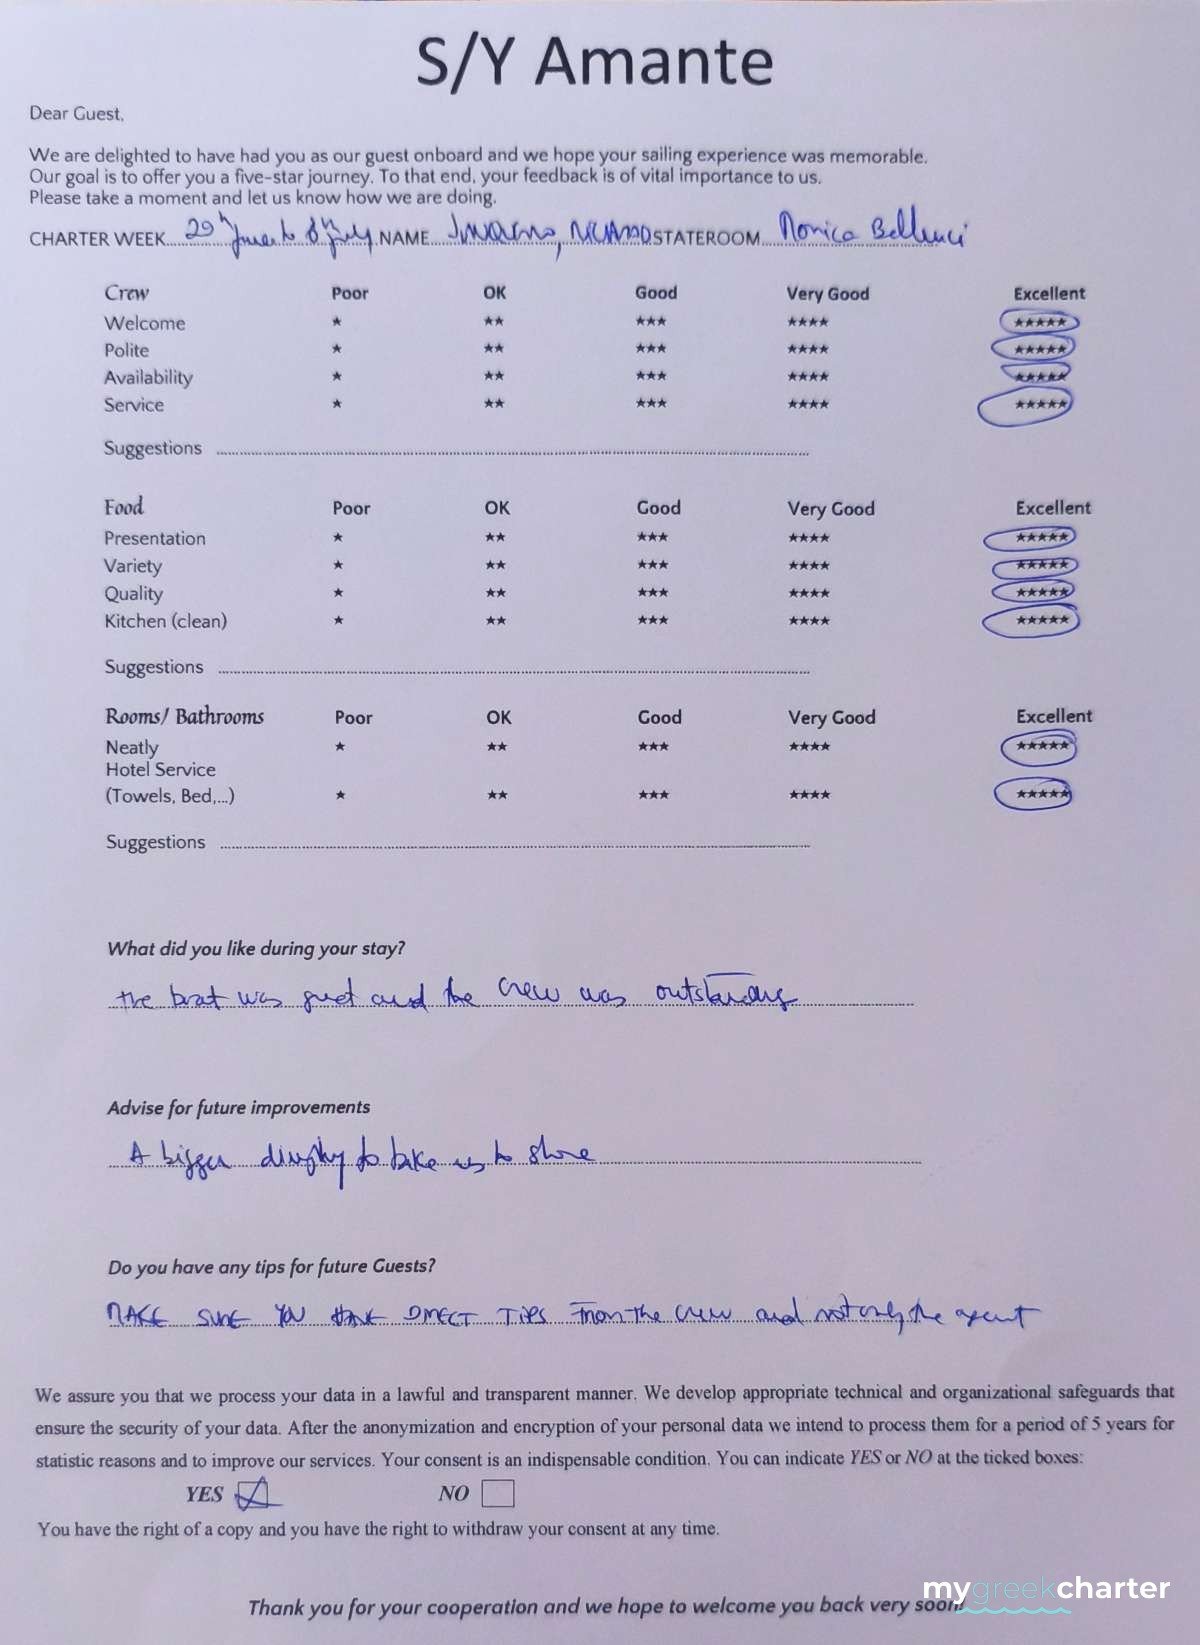 S/Y Amante
Dear Guest,
We are delighted to have had you as our guest onboard and we hope your sailing experience was memorable.
Our goal is to offer you a five-star journey. To that end, your feedback is of vital importance to us.
Please take a moment and let us know how we are doing.
CHARTER WEEK 29th June to 6th July NAME STATEROOM Monica Bellucci
Crew Poor OK Good Very Good Excellent
Welcome ★ ★★ ★★★ ★★★★ ★★★★★
Polite ★ ★★ ★★★ ★★★★ ★★★★★
Availability ★ ★★ ★★★ ★★★★ ★★★★★
Service ★ ★★ ★★★ ★★★★ ★★★★★
Suggestions
Food Poor OK Good Very Good Excellent
Presentation ★ ★★ ★★★ ★★★★ ★★★★★
Variety ★ ★★ ★★★ ★★★★ ★★★★★
Quality ★ ★★ ★★★ ★★★★ ★★★★★
Kitchen (clean) ★ ★★ ★★★ ★★★★ ★★★★★
Suggestions
Rooms/ Bathrooms Poor OK Good Very Good Excellent
Neatly ★ ★★ ★★★ ★★★★ ★★★★★
Hotel Service
(Towels, Bed,...) ★ ★★ ★★★ ★★★★ ★★★★★
Suggestions
What did you like during your stay?
the boat was great and the crew was outstanding
Advise for future improvements
A bigger dinghy to take us to shore
Do you have any tips for future Guests?
MAKE SURE YOU HAVE DIRECT TIPS From the crew and not only the agent
We assure you that we process your data in a lawful and transparent manner. We develop appropriate technical and organizational safeguards that
ensure the security of your data. After the anonymization and encryption of your personal data we intend to process them for a period of 5 years for
statistic reasons and to improve our services. Your consent is an indispensable condition. You can indicate YES or NO at the ticked boxes:
YES NO
You have the right of a copy and you have the right to withdraw your consent at any time.
mygreekcharter
Thank you for your cooperation and we hope to welcome you back very soon!